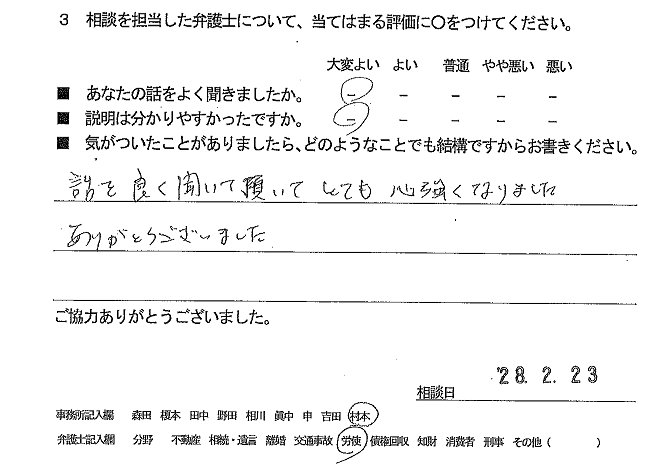 3 相談を担当した弁護士について、当てはまる評価に○をつけてください。
大変よい よい 普通 やや悪い 悪い
■ あなたの話をよく聞きましたか。 － － － － －
■ 説明は分かりやすかったですか。 － － － － －
■ 気がついたことがありましたら、どのようなことでも結構ですからお書きください。
話を良く聞いて頂いてとても心強くなりました
ありがとうございました
ご協力ありがとうございました。
相談日 '28. 2. 23
事務所記入欄 森田 榎本 田中 野田 相川 眞中 申 吉田 村本
弁護士記入欄 分野 不動産 相続・遺言 離婚 交通事故 労使 債権回収 知財 消費者 刑事 その他（ ）